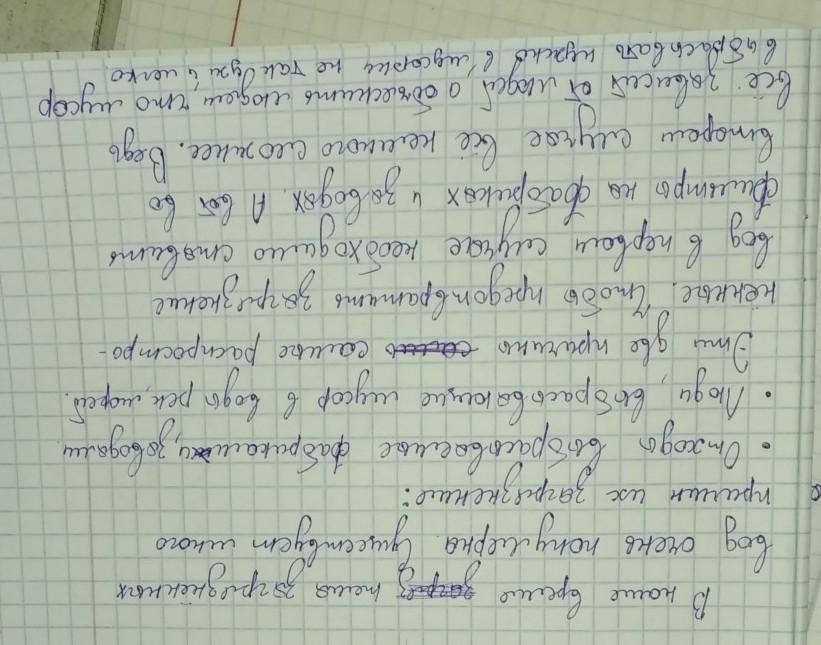 В наше время загрез тема загрезнённых
вод очень популярна. Существует много
причин их загрезнение:
• Отходы выбрасываемые фабриками, заводами
• Люди, выбрасывающие мусор в воды рек, морей.
Эти две причины самые распростро-
нённые. Чтобы предотвратить загрезнение
вод в первом случае необходимо ставить
фильтры на фабриках и заводах. А вот во
втором случае всё немного сложнее. Ведь
всё зависет от людей, а объеснить людям что мусор
выбрасывать нужно в мусорку не так уж и легко